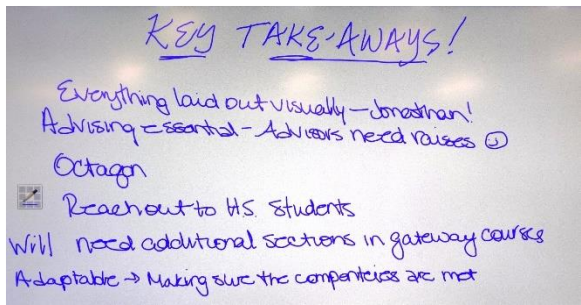 KEY TAKE-AWAYS!
Everything laid out visually - Jonathan!
Advising essential - Advisors need raises ☺
Octagon
Reach out to HS. Students
Will need additional sections in gateway courses
Adaptable → Making sure the competencies are met